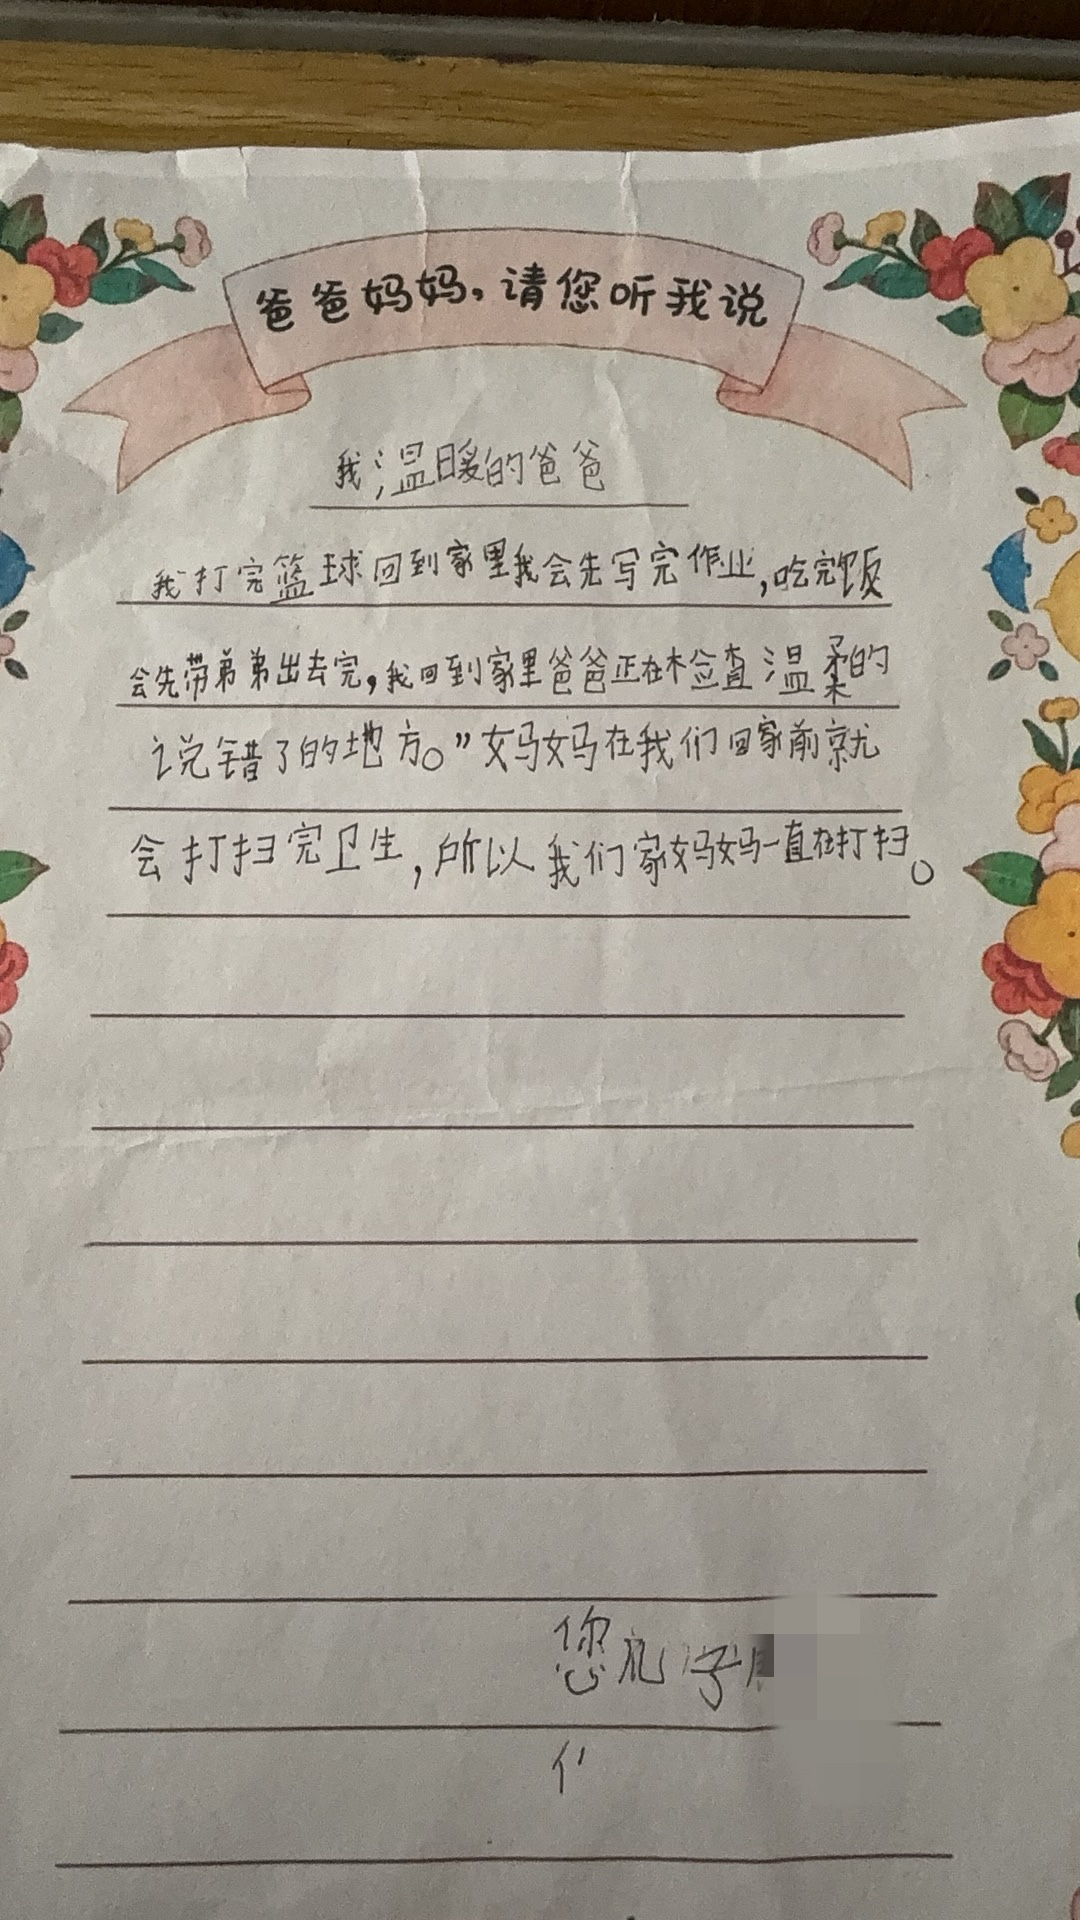 爸爸妈妈，请您听我说
我温暖的爸爸
我打完篮球回到家里我会先写完作业，吃完饭
会先带弟弟出去完，我回到家里爸爸正在检查温柔的
说错了的地方。”妈妈在我们回家前就
会打扫完卫生，所以我们家妈妈一直在打扫。
您